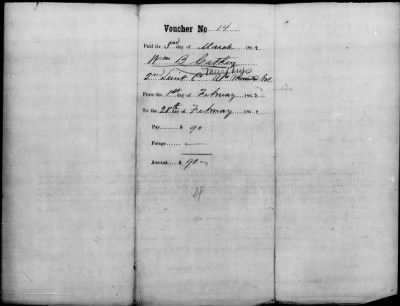 Voucher No 14
Paid the 3rd day of March 186
Wm B. Cathey
2nd Lieut. Co
From the 1st day of February 186
To the 28th day of February 186
Pay......$ 90
Forage......
Amount....$ 90